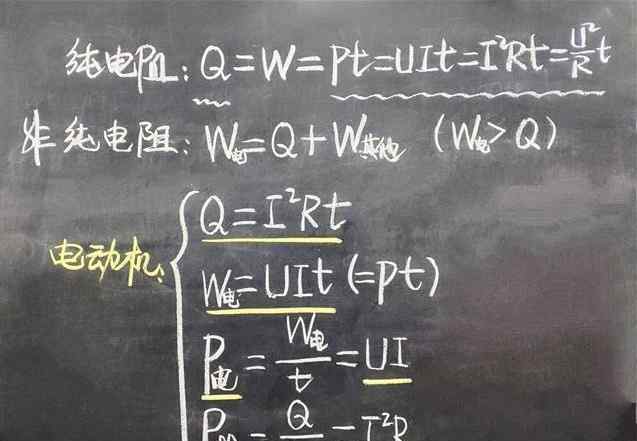 纯电阻: Q = W = Pt = UIt = I²Rt = U²/R t
非纯电阻: W电 = Q + W其他 (W电 > Q)
电动机:
Q = I²Rt
W电 = UIt (= Pt)
P电 = W电/t = UI